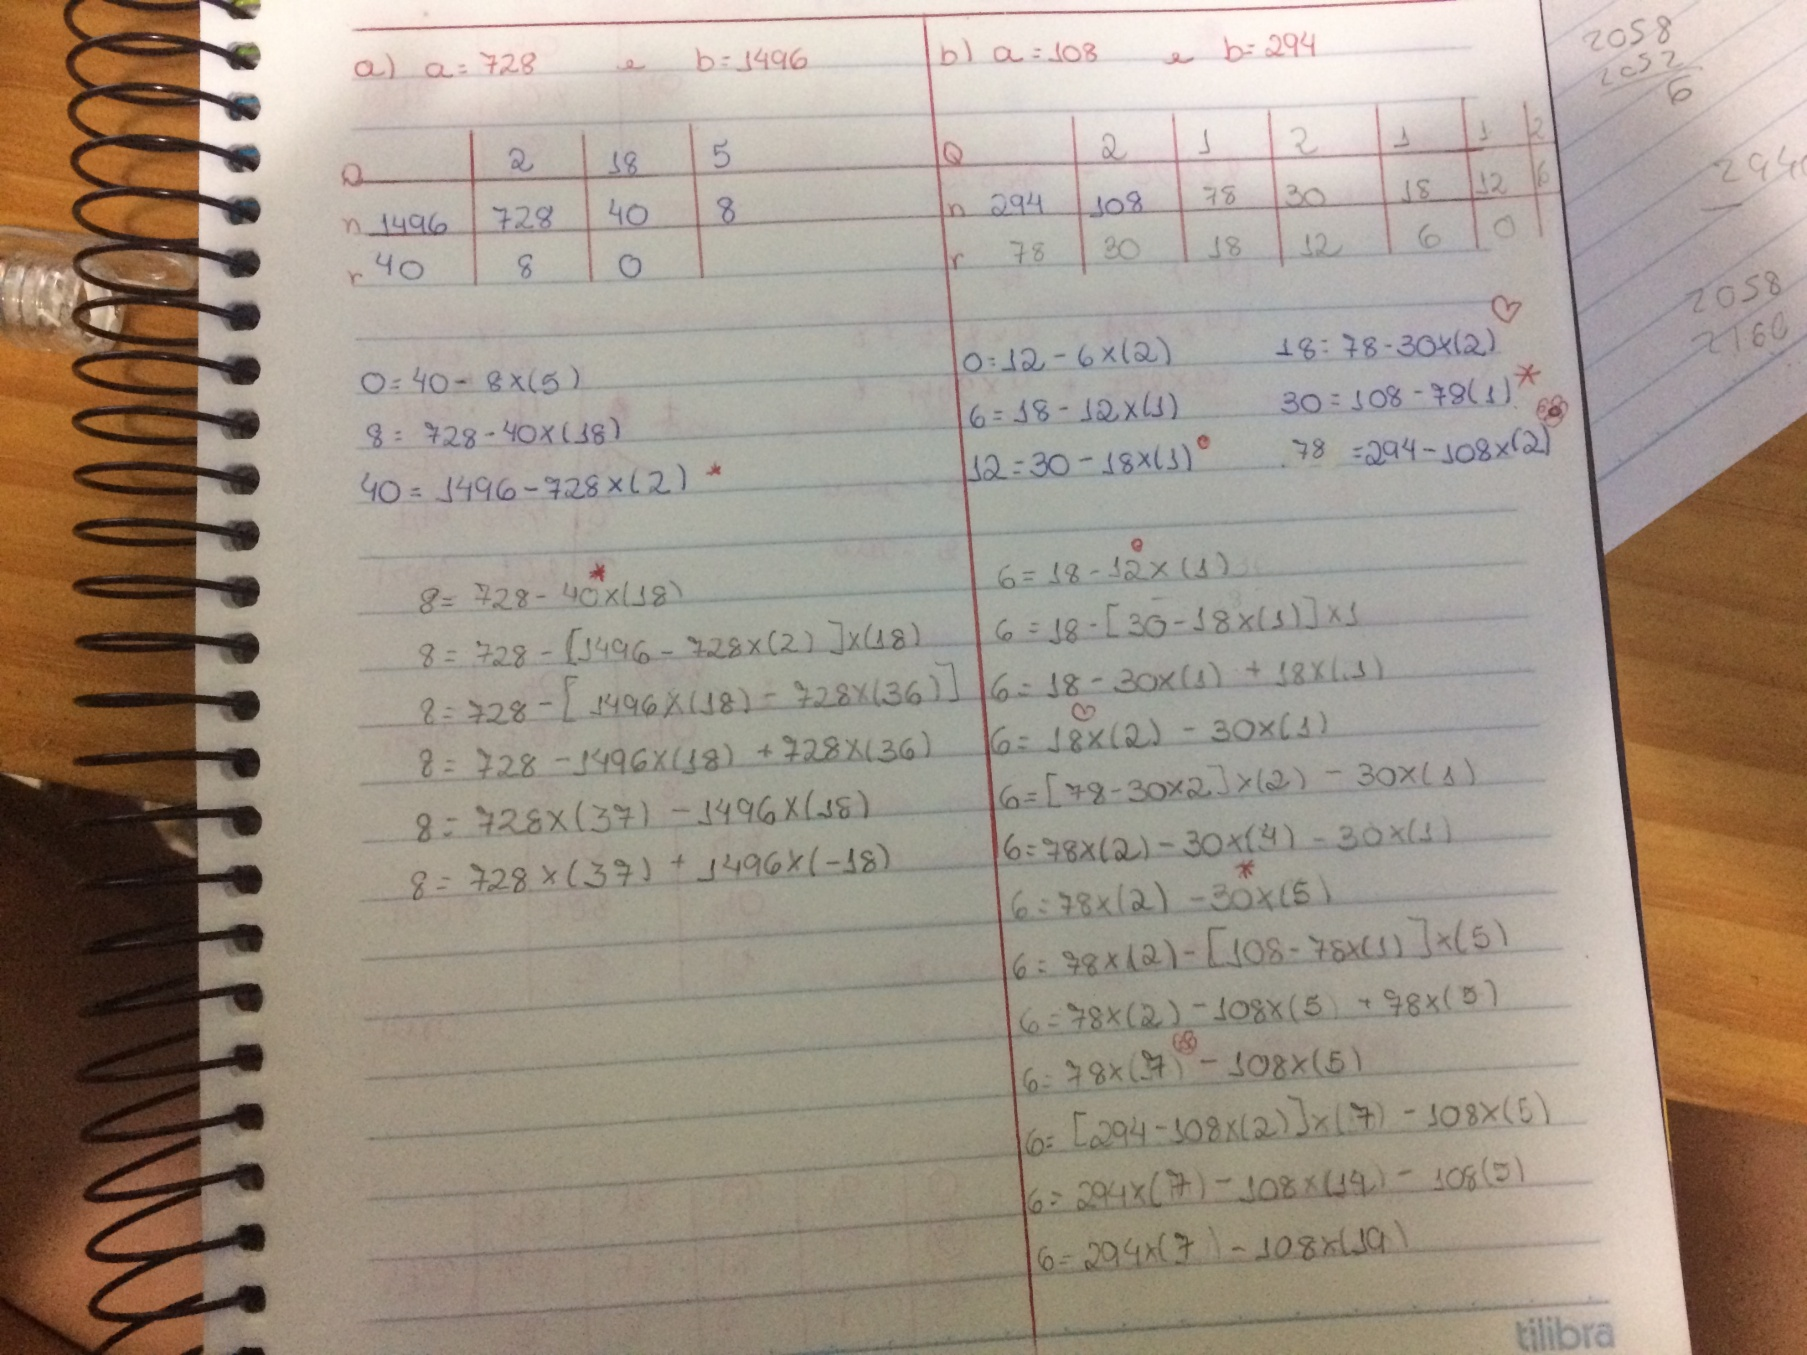 a) a=728 e b=1496
Q 2 18 5
n 1496 728 40 8
r 40 8 0
0=40-8x(5)
8=728-40x(18)
40=1496-728x(2) *
8=728-40x(18)
8=728-[1496-728x(2)]x(18)
8=728-[1496x(18)-728x(36)]
8=728-1496x(18)+728x(36)
8=728x(37)-1496x(18)
8=728x(37)+1496x(-18)
b) a=108 e b=294
Q 2 1 2 1 1 2
n 294 108 78 30 18 12 6
r 78 30 18 12 6 0
0=12-6x(2)
6=18-12x(1)
12=30-18x(1)
18=78-30x(2) ♡
30=108-78(1) *
78=294-108x(2)
6=18-12x(1)
6=18-[30-18x(1)]x1
6=18-30x(1)+18x(1)
6=18x(2)-30x(1)
6=[78-30x2]x(2)-30x(1)
6=78x(2)-30x(4)-30x(1)
6=78x(2)-30x(5)
6=78x(2)-[108-78x(1)]x(5)
6=78x(2)-108x(5)+78x(5)
6=78x(7)-108x(5)
6=[294-108x(2)]x(7)-108x(5)
6=294x(7)-108x(14)-108(5)
6=294x(7)-108x(19)
tilibra
2058
2052
6
294
2058